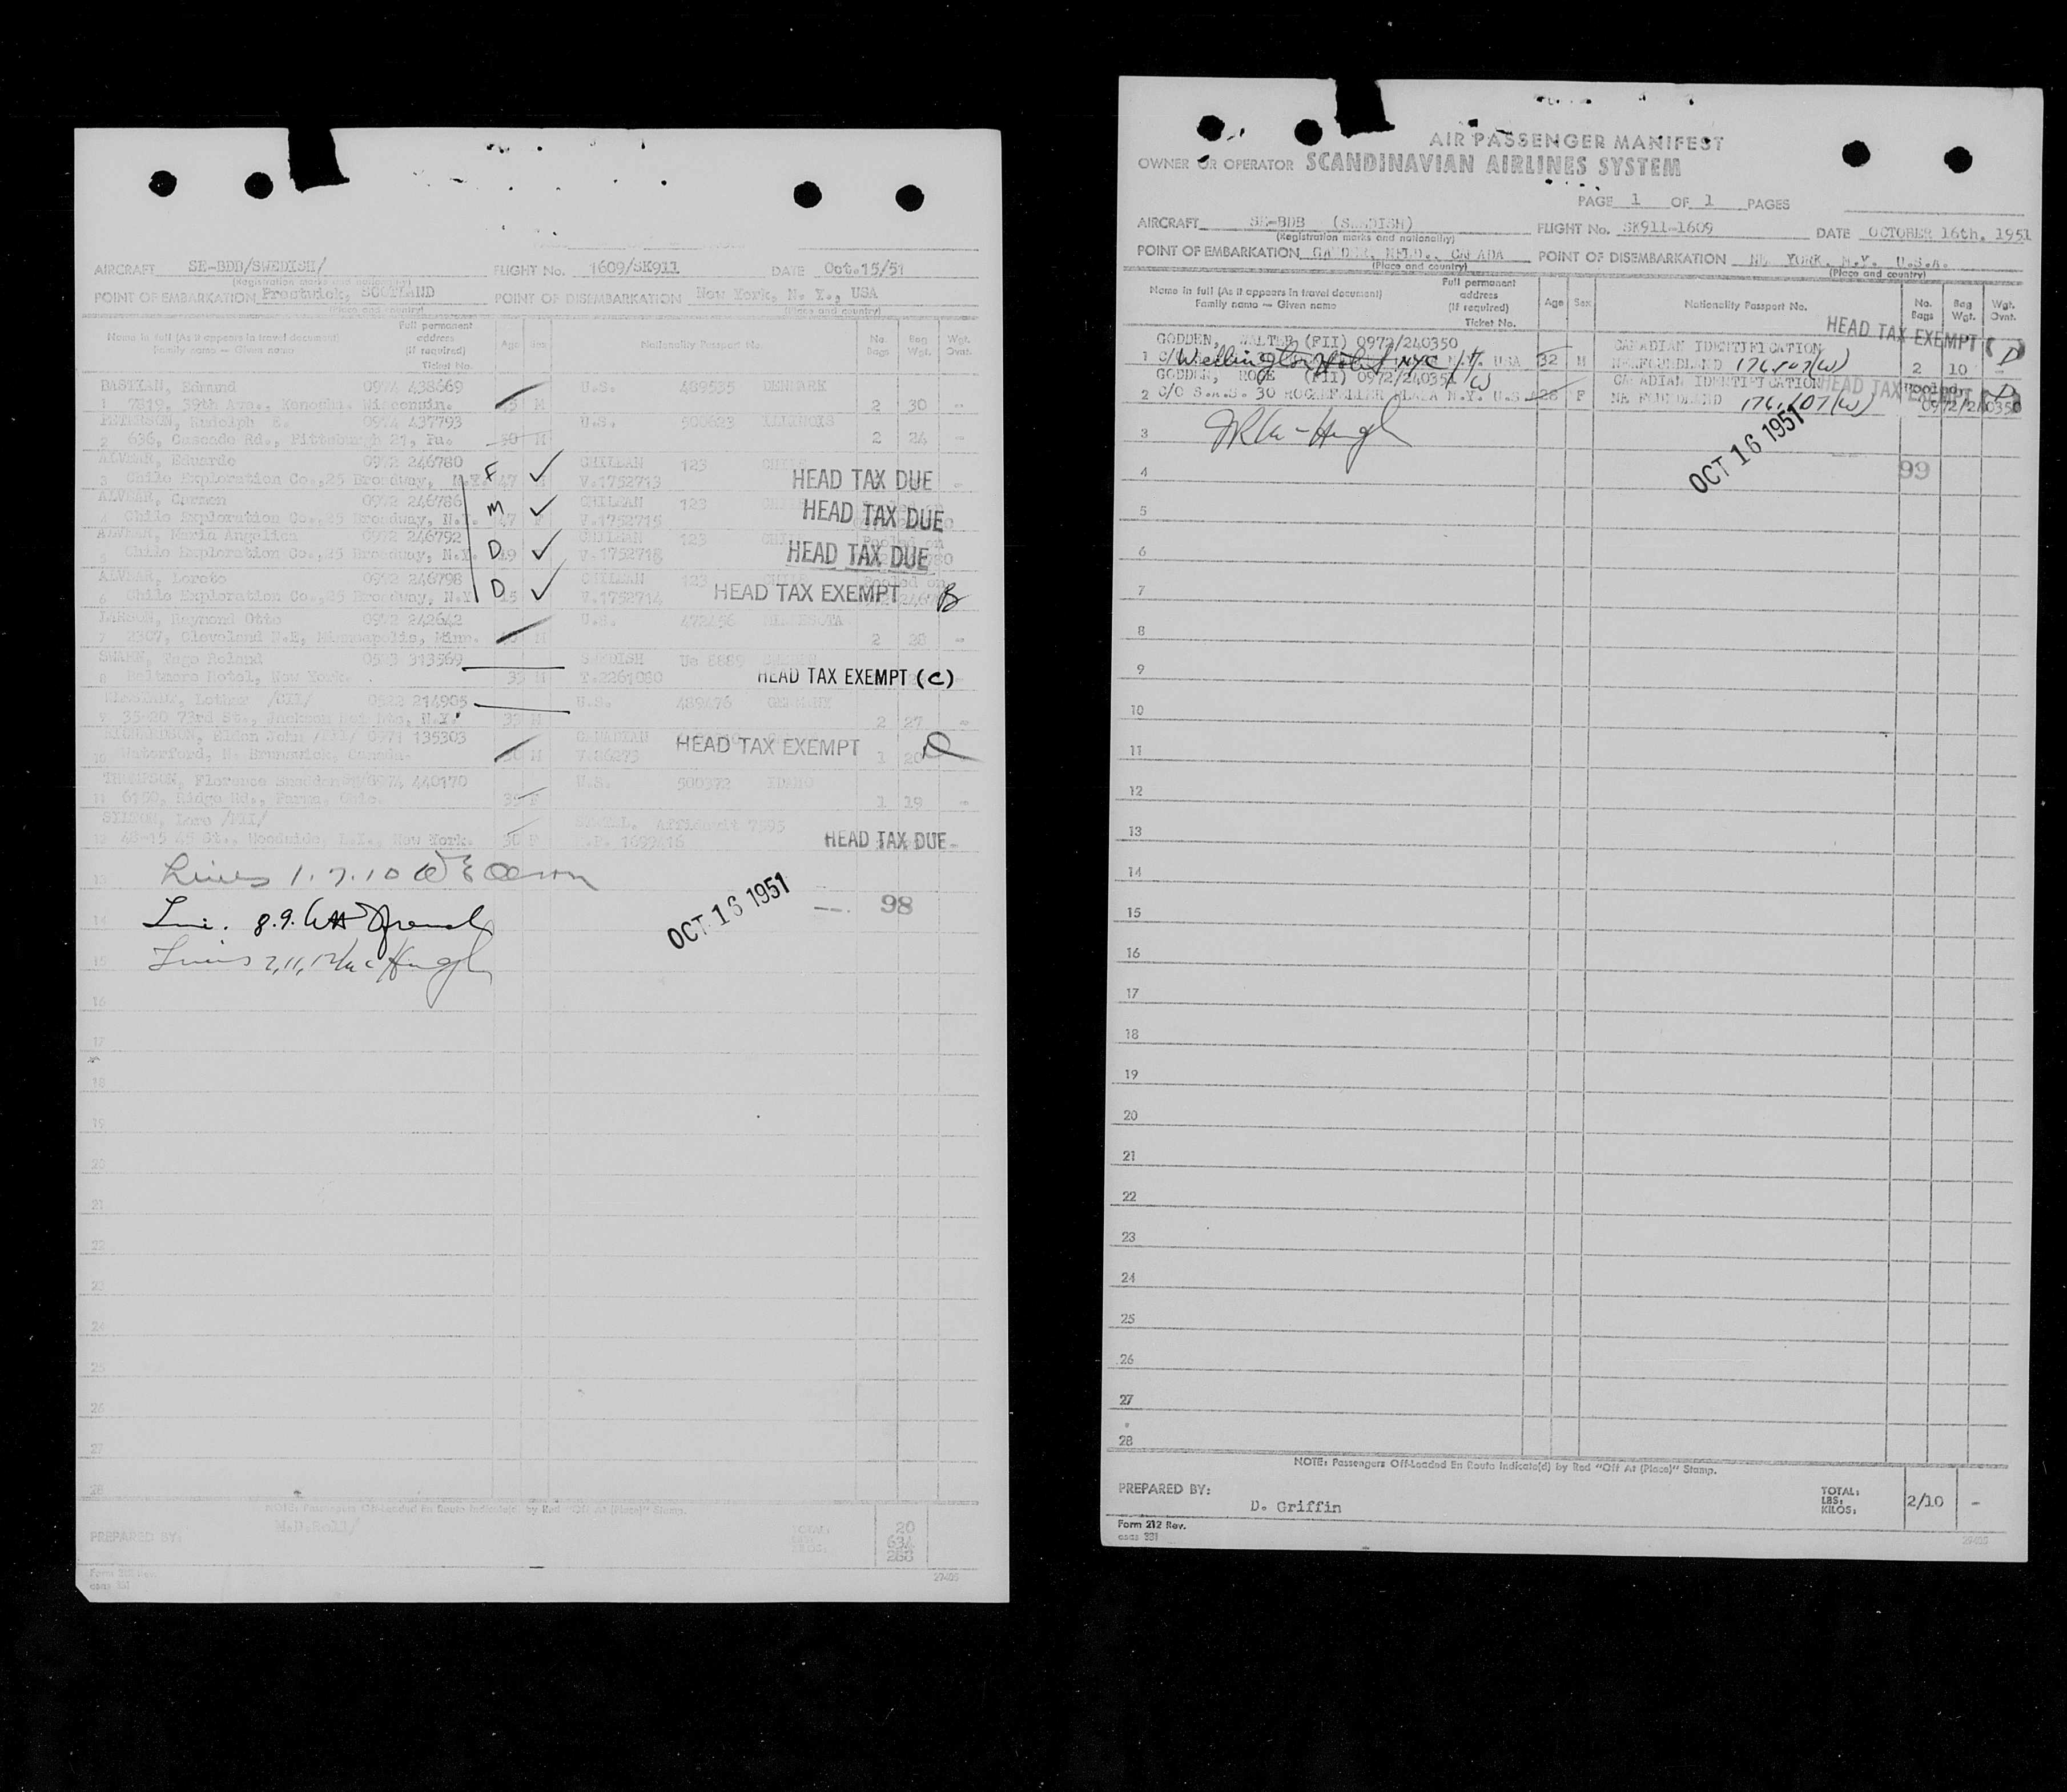 AIRCRAFT SE-BDB/SWEDISH/ FLIGHT No. 1609/SK911 DATE Oct.15/51
(Registration marks and nationality)
POINT OF EMBARKATION Prestwick, SCOTLAND POINT OF DISEMBARKATION New York, N. Y., USA
(Place and country) (Place and country)
Name in full (As it appears in travel document) Full permanent address (If required) Age Sex Nationality Passport No. No. Bags Bag Wgt. Wgt. Ovnt.
Family name — Given name Ticket No.
BASTIAN, Edmund 0974 438669 U.S. 489535 DENMARK
1 7819, 39th Ave., Kenosha, Wisconsin. M 2 30 -
PETERSON, Rudolph E. 0974 437793 U.S. 500623 ILLINOIS
2 636, Cascade Rd., Pittsburgh 21, Pa. M 2 24 -
ALVEAR, Eduardo 0972 246780 F CHILEAN 123
3 Chile Exploration Co.,25 Broadway, N.Y. 47 V.1752713 HEAD TAX DUE
ALVEAR, Carmen 0972 246786 M CHILEAN 123
4 Chile Exploration Co.,25 Broadway, N.Y. 47 F V.1752715 HEAD TAX DUE
ALVEAR, Maria Angelica 0972 246792 D CHILEAN 123 Pooled on
5 Chile Exploration Co.,25 Broadway, N.Y. 19 V.1752718 HEAD TAX DUE
ALVEAR, Loreto 0972 246798 D CHILEAN 123 Pooled on
6 Chile Exploration Co.,25 Broadway, N.Y. 15 V.1752714 HEAD TAX EXEMPT B
LARSON, Raymond Otto 0972 242642 U.S. 472456 MINNESOTA
7 2307, Cleveland N.E, Minneapolis, Minn. M 2 28 -
Roland 0973 313569 SWEDISH Ue 8889 SWEDEN
8 Baltmore Hotel, New York. 35 M T.2261080 HEAD TAX EXEMPT (C)
Lothar /CII/ 0522 214905 U.S. 489476 GERMANY
9 35-20 73rd St., Jackson N.Y. 33 M 2 27 -
RICHARDSON, Eldon John /FII/ 0971 135303 CANADIAN
10 Waterford, N. Brunswick, Canada. 30 M V.86273 HEAD TAX EXEMPT D 1 20
THOMPSON, Florence 0974 440170 U.S. 500372 IDAHO
11 6150, Ridge Rd., Parma, Ohio. 35 F 1 19 -
/FII/ Affidavit 7595
12 48-15 45 St., Woodside, L.I., New York. 30 F 1699416 HEAD TAX DUE
13 Lines 1.7.10
14 8.9. OCT 16 1951 98
15 Lines 2,11,12
16
17
18
19
20
21
22
23
24
25
26
27
28
NOTE: Passengers Off-Loaded En Route Indicate(d) by Red "Off At (Place)" Stamp.
PREPARED BY: TOTAL: 20
LBS: 634
KILOS: 288
Form 212 Rev. 27405
AIR PASSENGER MANIFEST
OWNER OR OPERATOR SCANDINAVIAN AIRLINES SYSTEM
PAGE 1 OF 1 PAGES
AIRCRAFT SE-BDB (SWEDISH) FLIGHT No. SK911-1609 DATE OCTOBER 16th, 1951
(Registration marks and nationality)
POINT OF EMBARKATION GANDER, NFLD., CANADA POINT OF DISEMBARKATION NEW YORK, N.Y. U.S.A.
(Place and country) (Place and country)
Name in full (As it appears in travel document) Full permanent address (If required) Age Sex Nationality Passport No. No. Bags Bag Wgt. Wgt. Ovnt.
Family name — Given name Ticket No.
HEAD TAX EXEMPT (D)
GODDEN, WALTER (FII) 0972/240350 CANADIAN IDENTIFICATION
1 C/ Wellington Hotel NYC H USA 32 M NEWFOUNDLAND 176.507(W) 2 10 -
GODDEN, ROSE (FII) 0972/240351 W CANADIAN IDENTIFICATION HEAD TAX EXEMPT (D) Pooled
2 C/O S.A.S. 30 ROCKEFELLER PLAZA N.Y. U.S. 28 F NEWFOUNDLAND 176,507(W) 0972/240350
3
4 OCT 16 1951 99
5
6
7
8
9
10
11
12
13
14
15
16
17
18
19
20
21
22
23
24
25
26
27
28
NOTE: Passengers Off-Loaded En Route Indicate(d) by Red "Off At (Place)" Stamp.
PREPARED BY: D. Griffin TOTAL: LBS: KILOS: 2/10 -
Form 212 Rev.
osas 331 27405